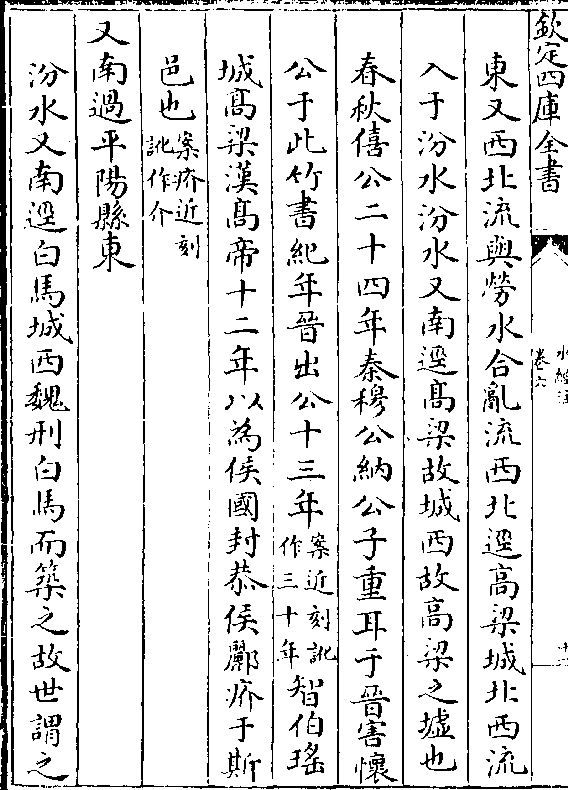 欽定四庫全書
水經注
卷六
東又西北流與勞水合亂流西北逕高梁城北西流
入于汾水汾水又南逕髙梁故城西故高梁之墟也
春秋僖公二十四年秦穆公納公子重耳于晉害懷
公于此竹書紀年晉出公十三年案近刻訛作三十年智伯瑤
城髙梁漢髙帝十二年以為侯國封恭侯酈疥于斯
邑也案疥近刻訛作介
又南過平陽縣東
汾水又南逕白馬城西魏刑白馬而築之故世謂之